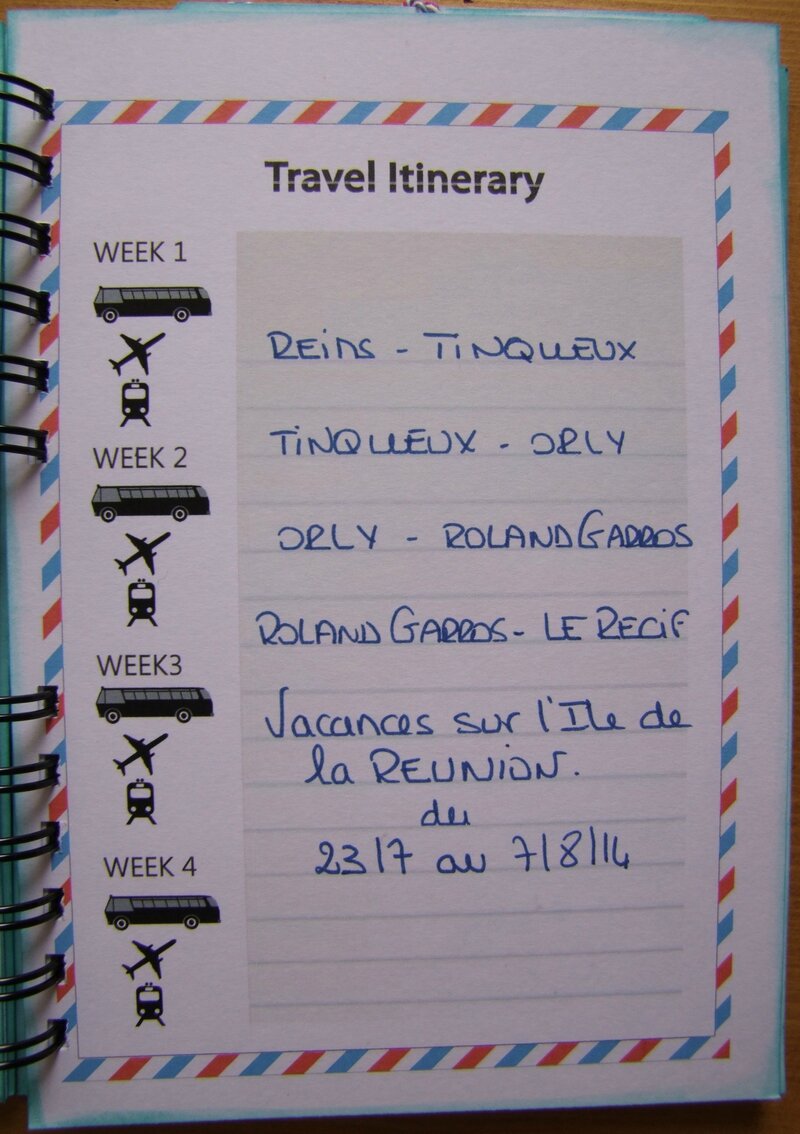 Travel Itinerary
WEEK 1
REims - TiNQUEUX
TiNQUEUX - ORLY
WEEK 2
ORLY - ROLAND GARROS
ROLAND GARROS - LE RECiF
WEEK3
Vacances sur l'Ile de
la REUNiON.
du
23/7 au 7/8/14
WEEK 4